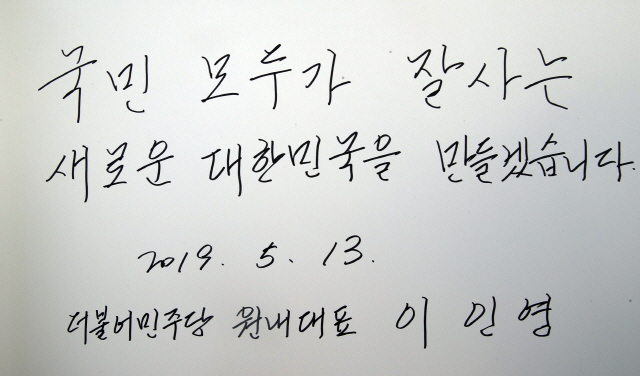 국민 모두가 잘사는
새로운 대한민국을 만들겠습니다.
2019. 5. 13.
더불어민주당 원내대표 이 인 영